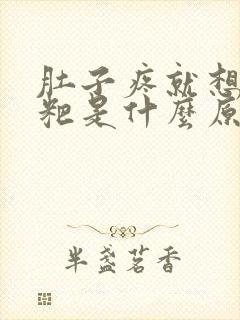 肚子疼就想
粑是什麼原
半盏茗香